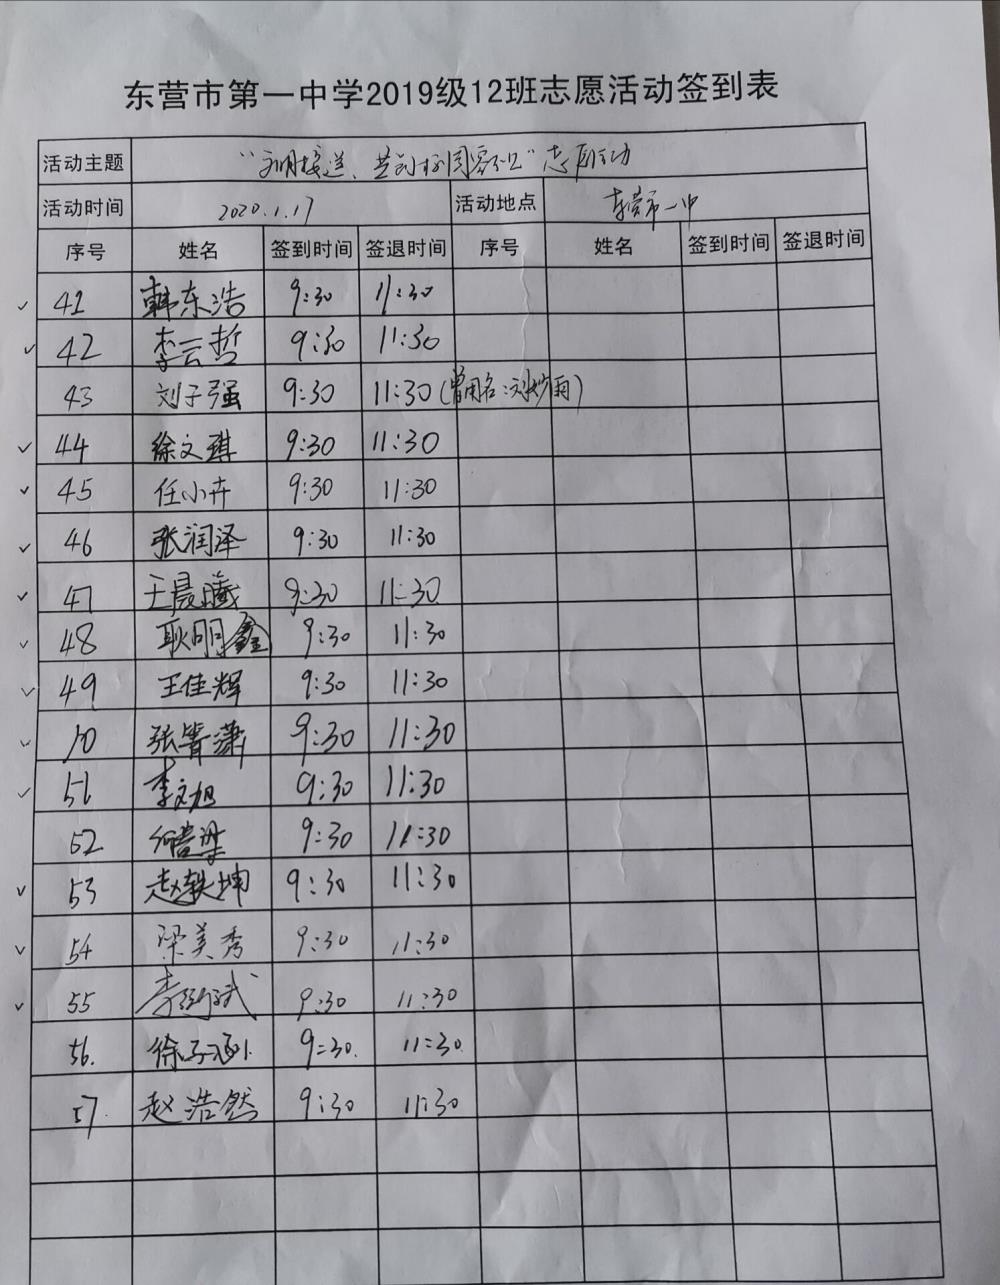 东营市第一中学2019级12班志愿活动签到表
活动主题 “文明接送、共创校园 ”志愿活动
活动时间 2020.1.17 活动地点 东营市一中
序号 姓名 签到时间 签退时间 序号 姓名 签到时间 签退时间
✓ 41 韩东浩 9:30 11:30
✓ 42 李云哲 9:30 11:30
43 刘子强 9:30 11:30 (曾用名:刘妙雨)
✓ 44 徐文琪 9:30 11:30
✓ 45 任小卉 9:30 11:30
✓ 46 张润泽 9:30 11:30
✓ 47 王晨曦 9:30 11:30
✓ 48 耿明鑫 9:30 11:30
✓ 49 王佳辉 9:30 11:30
✓ 50 张箐潇 9:30 11:30
✓ 51 李文旭 9:30 11:30
52 9:30 11:30
✓ 53 赵轶坤 9:30 11:30
✓ 54 梁美秀 9:30 11:30
✓ 55 9:30 11:30
56. 徐子涵 9:30. 11:30.
57. 赵浩然 9:30 11:30